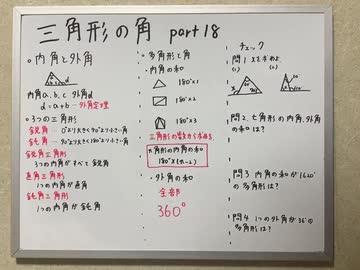 三角形の角 part 18
○内角と外角
内角a.b.c 外角d
d=a+b－外角定理
○3つの三角形
鋭角－0°より大きく90°より小さい角
鈍角－90°より大きく180°より小さい角
鋭角三角形
3つの内角がすべて鋭角
直角三角形
1つの内角が直角
鈍角三角形
1つの内角が鈍角
○多角形と角
・内角の和
180°×1
180°×2
180°×3
三角形の数から求める
n角形の内角の和
180°×(n-2)
・外角の和
全部
360°
チェック
問1 xを求めよ
(1) (2)
問2 七角形の内角.外角
の和は?
問3 内角の和が1620°
の多角形は?
問4 1つの外角が36°の
多角形は?